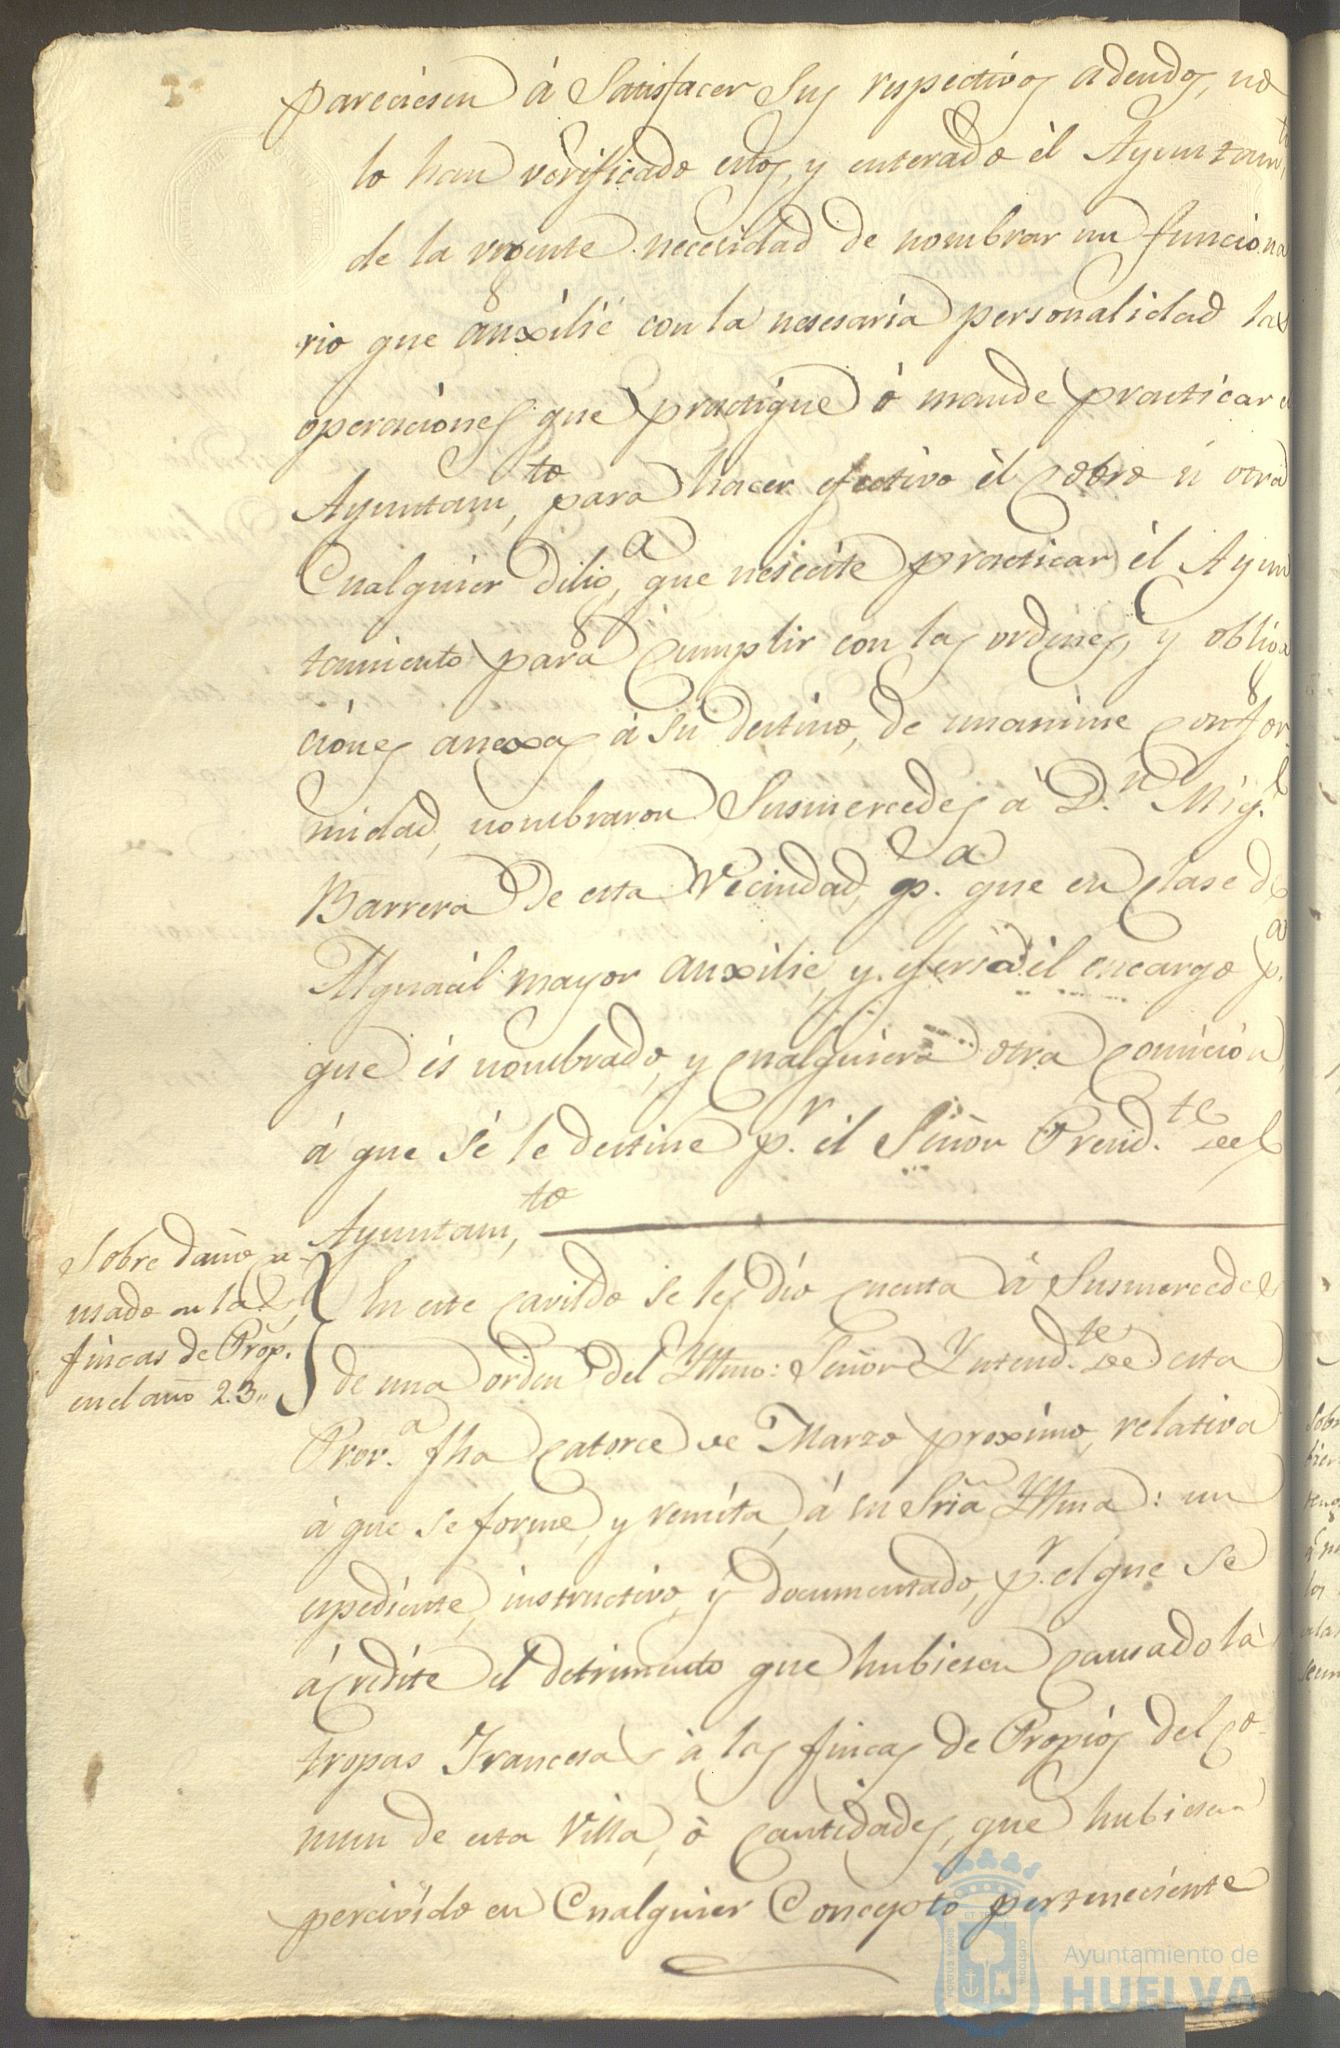 pareciesen á Satisfacer Sus respectivos adeudos, no
lo han verificado estos, y enterado él Ayuntam.to
de la urgente necesidad de nombrar un funciona
rio que auxilié con la nesesaria personalidad las
operaciones que practique ó mande practicar el
Ayuntam.to para hacer efectivo él cobro ú otra
Cualquier Dilig.a que nesecite practicar él Ayun
tamiento para cumplir con las ordenes, y obliga
ciones anexas á su destino, de unanime confor
midad, nombraron Susmercedes á D.n Mig.l
Barrera de esta Vecindad p.a que en clase de
Alguacil mayor auxilie, y ejersa él encargo p.a
que és nombrado, y cualquiera otra comición
á que sé le destine p.r él Señor Presid.te del
Ayuntam.to
Sobre daño ca-
usado en las
fincas de Prop.
en el año 23„
En este cavildo se les dió cuenta á Susmercedes
de una orden del Yltmo: Señor Yntend.te de esta
Prov.a fha catorce de Marzo proximo, relativa
á que se forme, y remita, á su Sria Yltma: un
espediente, instructivo, y documentado, p.r el que se
ácredite el detrimento que hubiesen causado la
tropas Francesas à las fincas de Propios del Co-
mun de esta Villa, ò cantidades, que hubiesen
percivido en Cualquier Concepto perteneciente
Ayuntamiento de
HUELVA